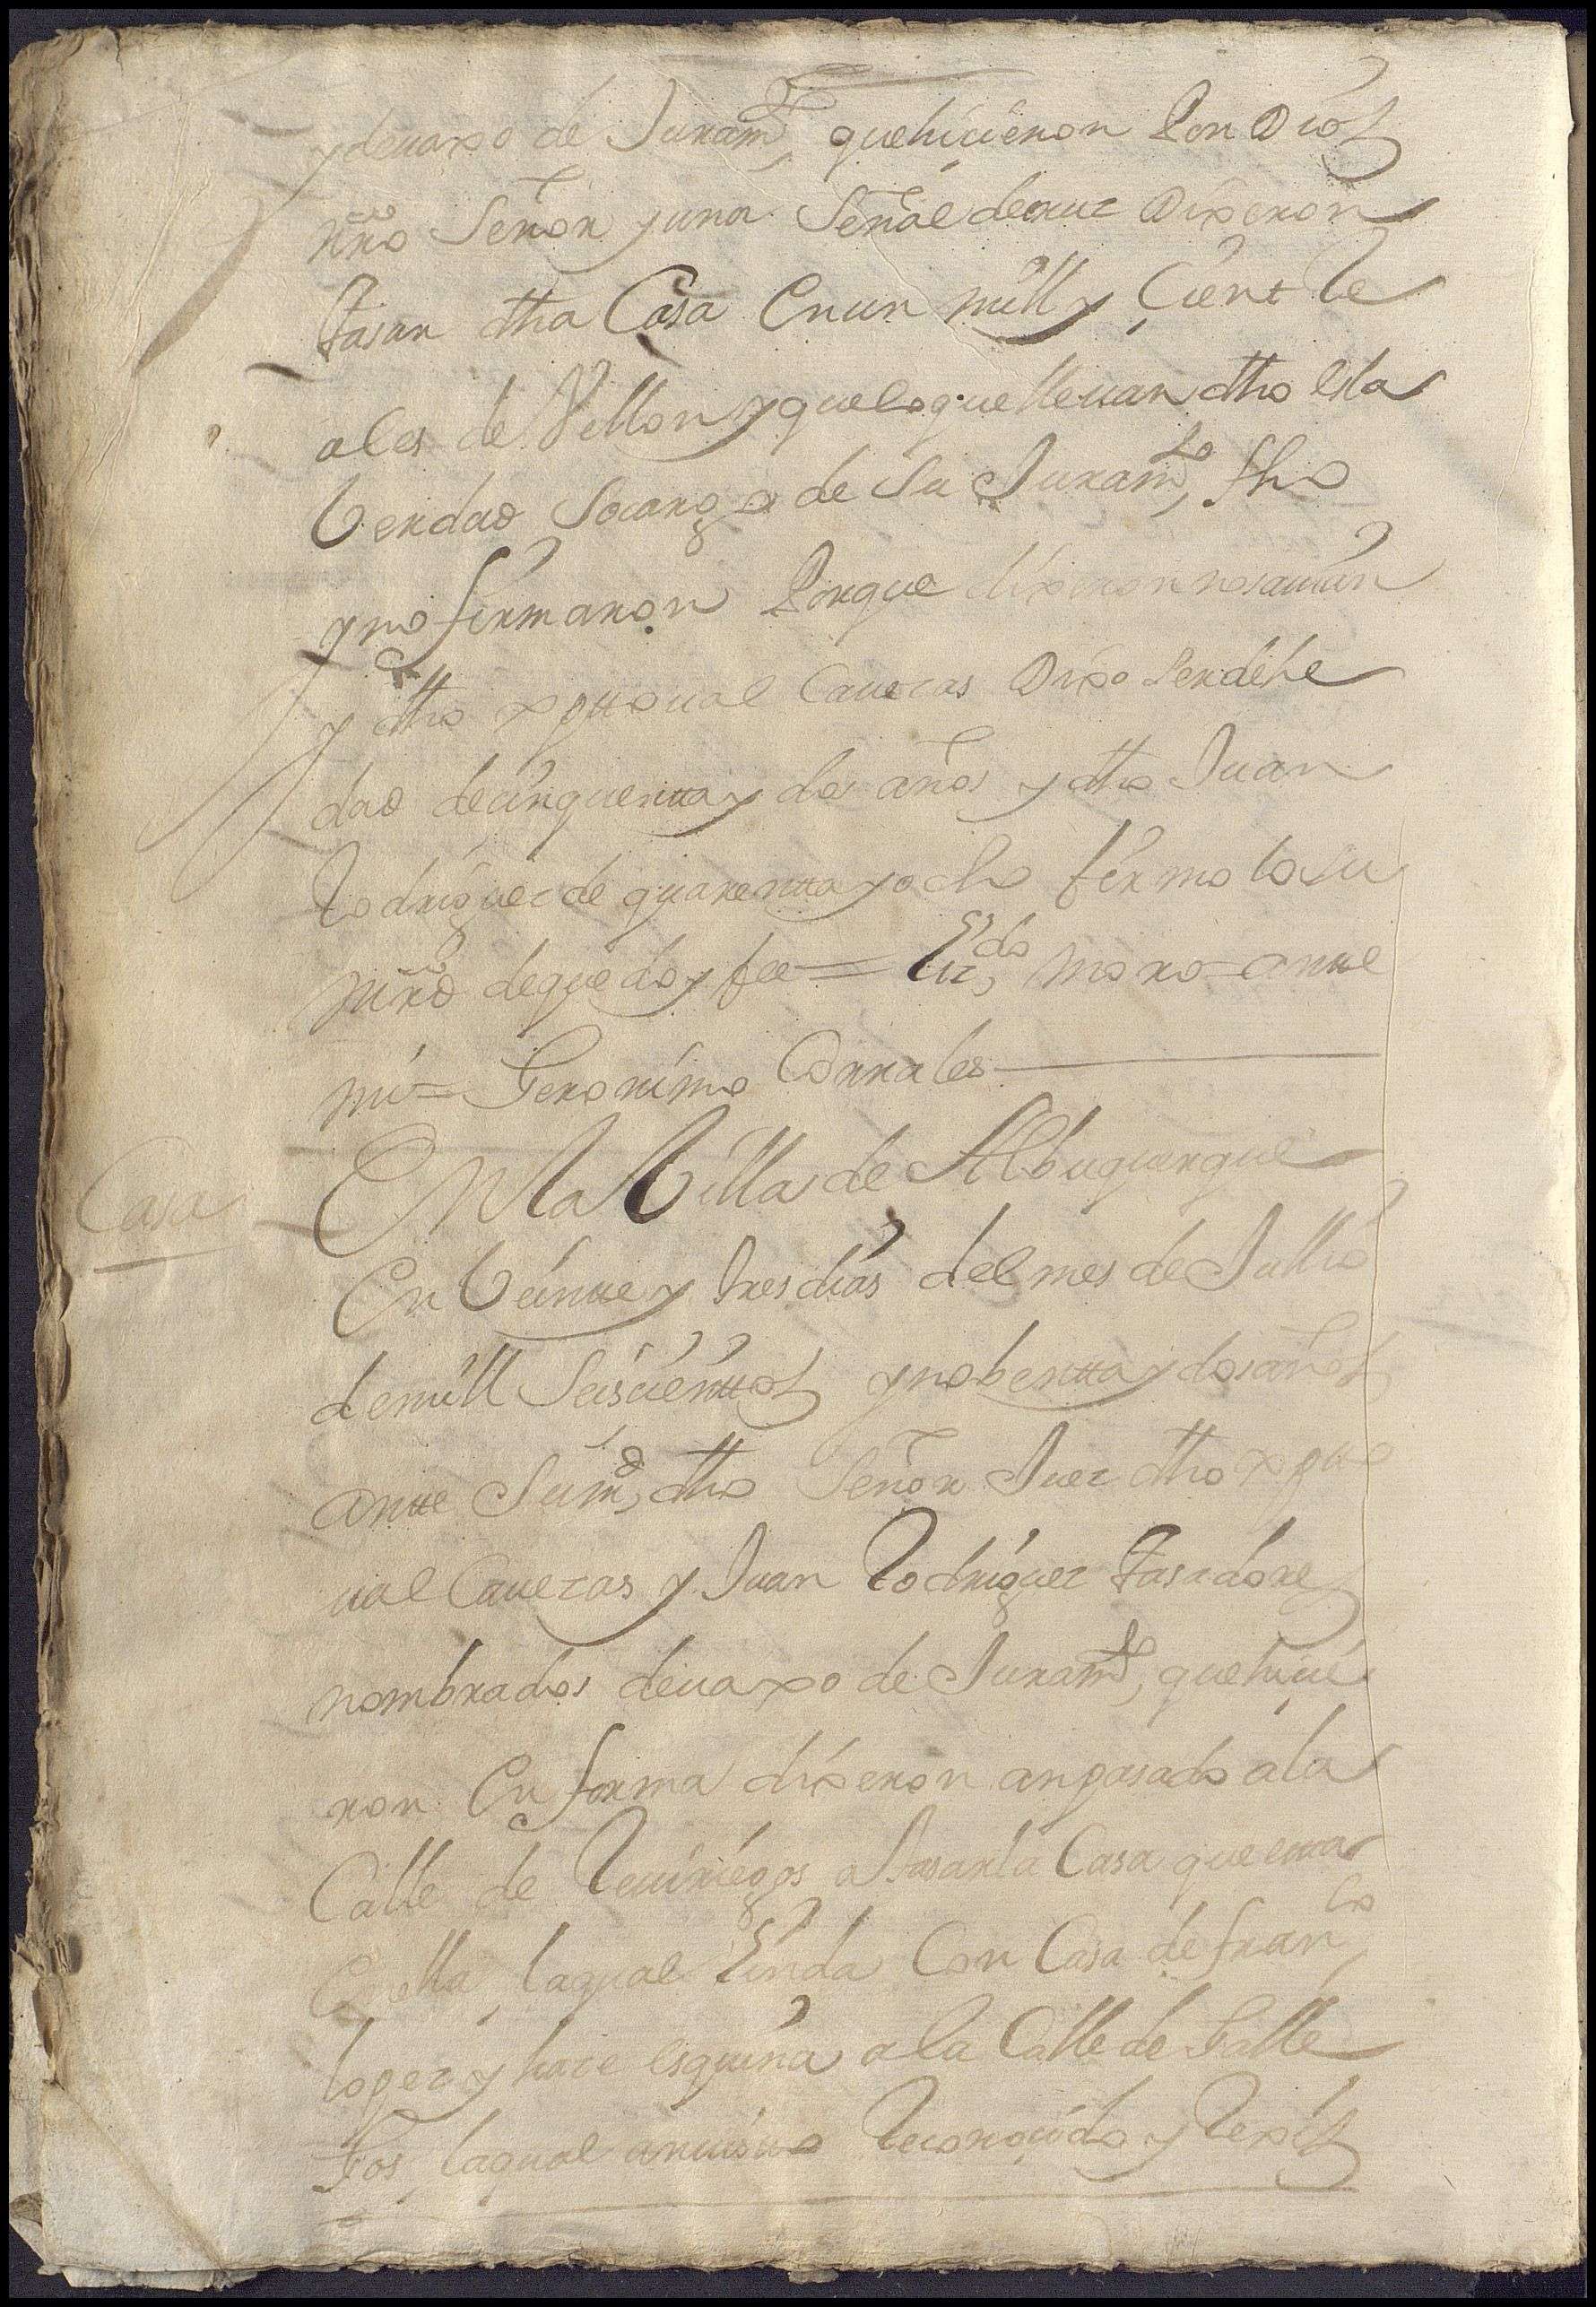 y devaxo de Juramto, que hicieron Por Dios
nro Señor y una Señal de cruz Dixeron
tasan dha Casa En un mill y Cient Re
ales de Vellon y que lo que llevan dho es la
Verdad Socargo de Su Juramto, fho
y no firmaron Porque dixeron no savian
y dho xptoval Cavezas Dixo Ser de he
dad de cinquentta y dos años y dho Juan
Rodriguez de quarentta y ocho firmolo su
mrd de que doy fee = Lizdo, moro = antte
mi = Geronimo Corrales
Casa
En la Villa de Alburquerque
En Veintte y tres dias del mes de Jullio
de mill Seiscienttos y nobentta y dos años
antte Sumd, dho Señor Juez dho xpto
val Cavezas y Juan Rodriguez tasadores
nombrados devaxo de Juramto, que hicie
ron En forma dixeron an pasado a la
Calle de a tasar la Casa que esta
En ella, la qual Linda Con Casa de Franco,
lopez y hace esquina a la Calle de Galle
gos, la qual an visto Reconocido y